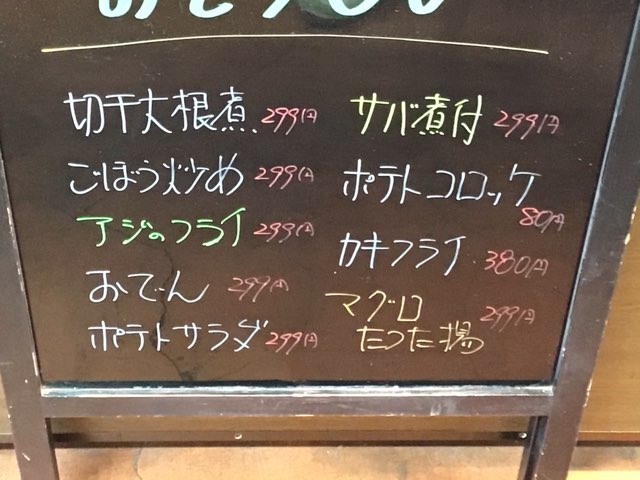 切干大根煮 299円
ごぼう炒め 299円
アジのフライ 299円
おでん 299円
ポテトサラダ 299円
サバ煮付 299円
ポテトコロッケ
80円
カキフライ 380円
マグロ
たつた揚 299円